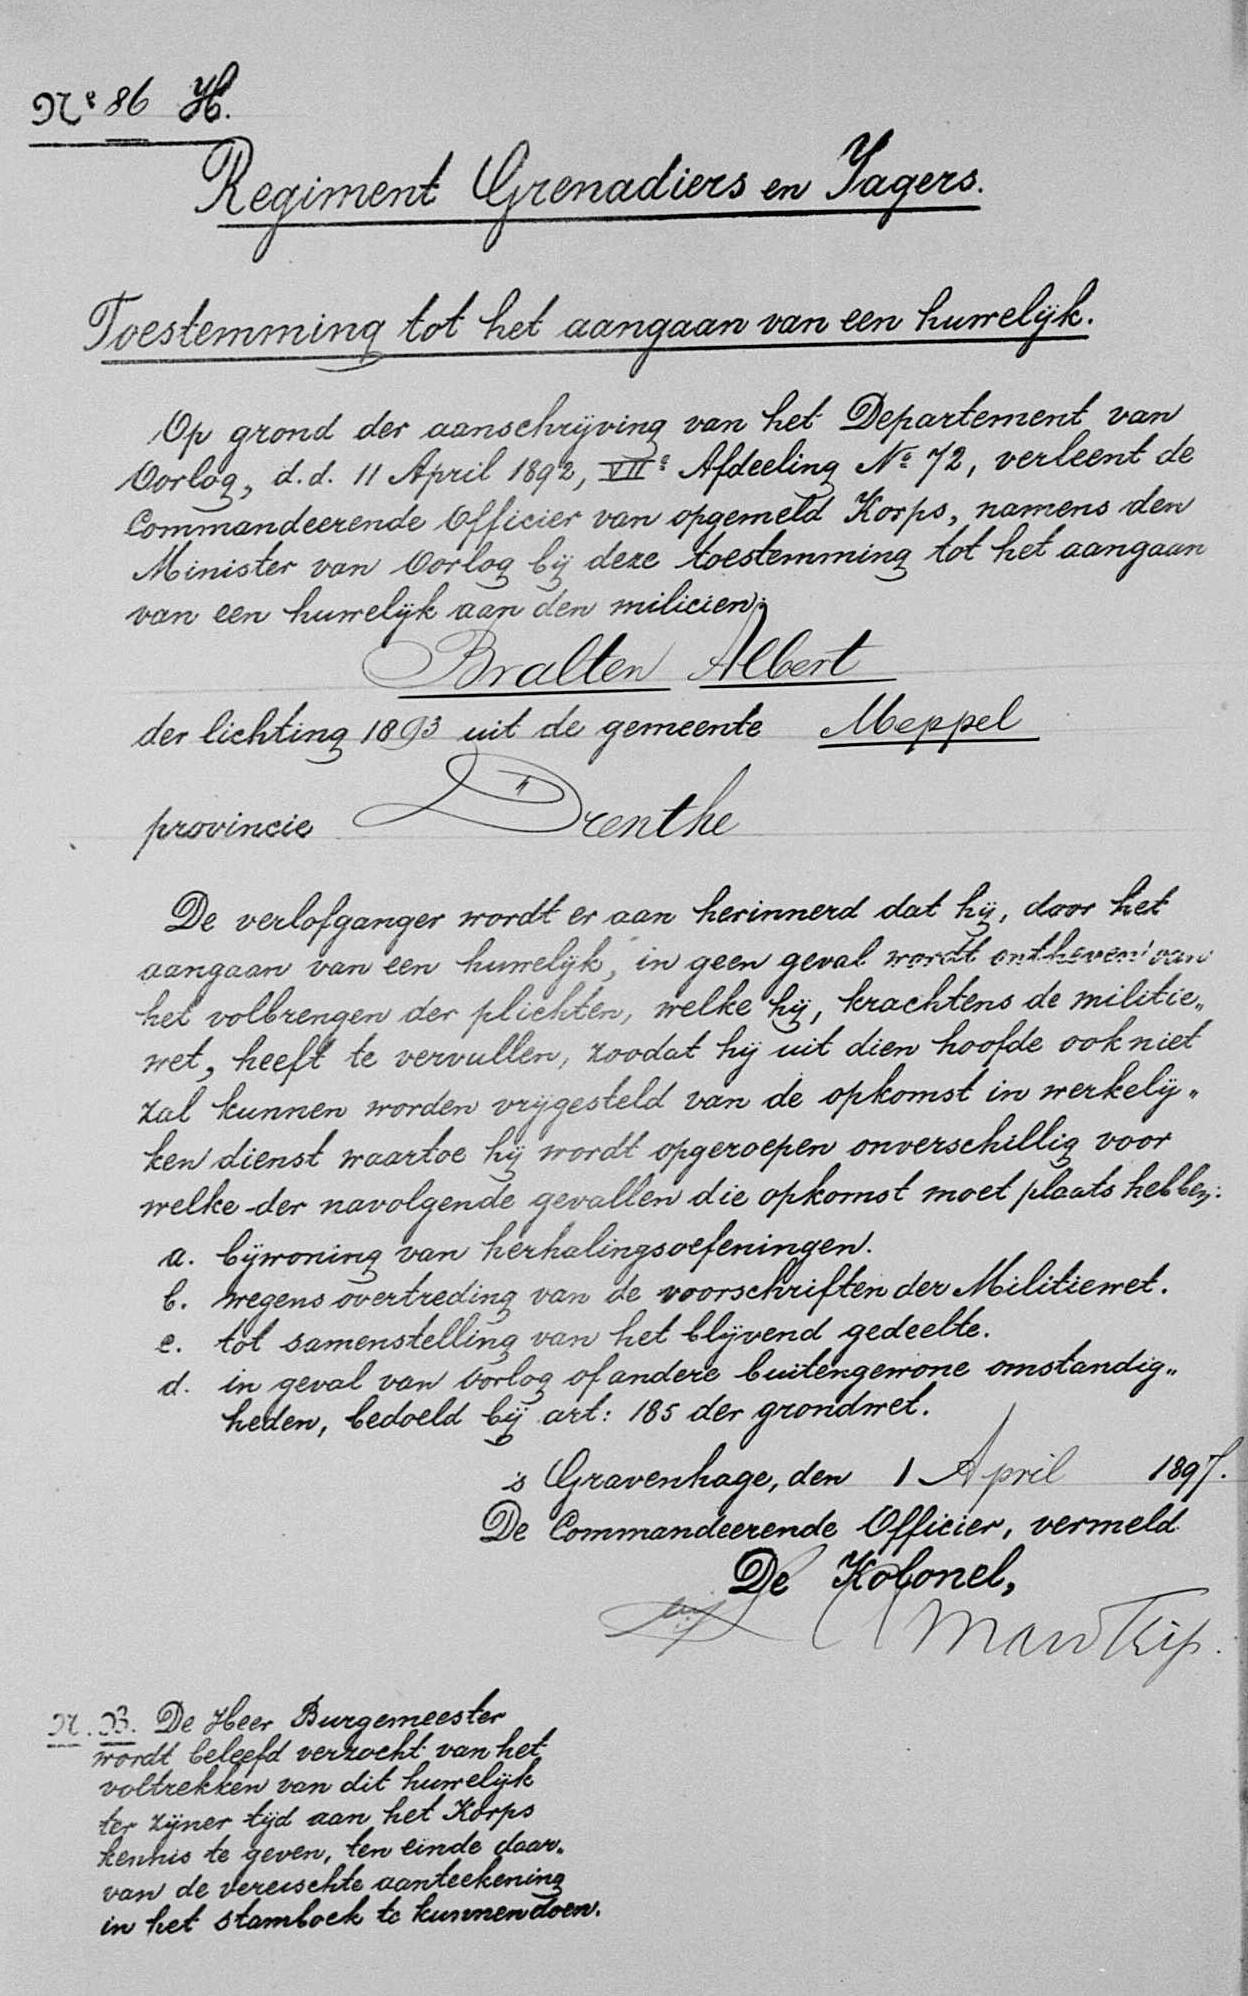 No 86 H.
Regiment Grenadiers en Jagers.
Toestemming tot het aangaan van een huwelijk.
Op grond der aanschrijving van het Departement van
Oorlog, d.d. 11 April 1892, VIIe Afdeeling No 72, verleent de
Commandeerende Officier van opgemeld Korps, namens den
Minister van Oorlog bij deze toestemming tot het aangaan
van een huwelijk aan den milicien:
Bralten Albert
der lichting 1893 uit de gemeente Meppel
provincie Drenthe
De verlofganger wordt er aan herinnerd dat hij, door het
aangaan van een huwelijk, in geen geval wordt ontheven van
het volbrengen der plichten, welke hij, krachtens de militie„
wet, heeft te vervullen, zoodat hij uit dien hoofde ook niet
zal kunnen worden vrijgesteld van de opkomst in werkelij„
ken dienst waartoe hij wordt opgeroepen onverschillig voor
welke der navolgende gevallen die opkomst moet plaats hebben:
a. bijwoning van herhalingsoefeningen.
b. wegens overtreding van de voorschriften der Militiewet.
c. tot samenstelling van het blijvend gedeelte.
d. in geval van Oorlog of andere buitengewone omstandig„
heden, bedoeld bij art: 185 der grondwet.
's Gravenhage, den 1 April 1897.
De Commandeerende Officier, vermeld
De Kolonel,
N.B. De Heer Burgemeester
wordt beleefd verzocht van het
voltrekken van dit huwelijk
ter zijner tijd aan het Korps
kennis te geven, ten einde daar„
van de vereischte aanteekening
in het stamboek te kunnen doen.